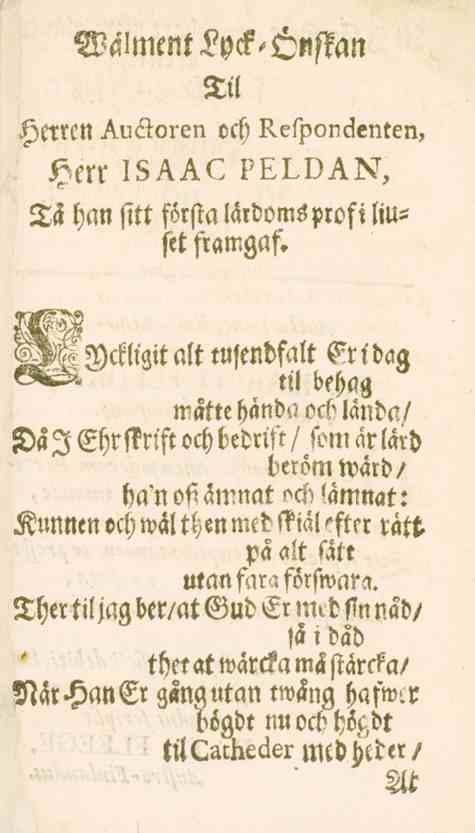 Wälment Lyck-Önskan
Til
Herren Auctoren och Respondenten,
Herr ISAAC PELDAN,
Tå han sitt första lärdoms prof i liu-
set framgaf.
LYckligit alt tusendfalt Er i dag
til behag
måtte hända och lända/
Då J Ehr skrift och bedrift / som är lärd
beröm wärd /
ha'n oß ämnat och lämnat:
Kunnen och wäl then med skiäl efter rätt
på alt sätt
utan fara förswara.
Ther til jag ber/at Gud Er med sin nåd/
så i dåd
thet at wärcka må stärcka/
När Han Er gång utan twång hafwer
bögdt nu och högdt
til Catheder med heder /
At